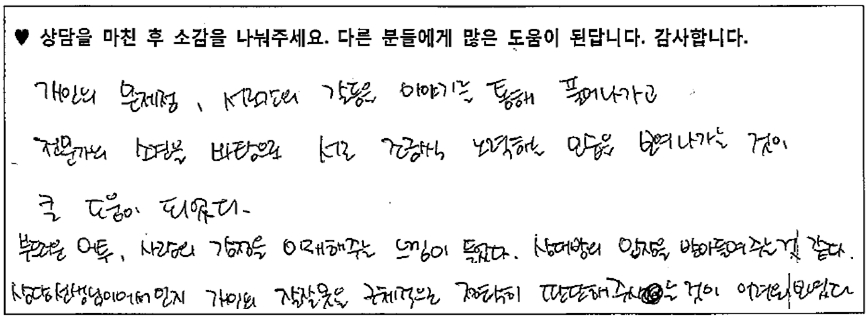 ♥ 상담을 마친 후 소감을 나눠주세요. 다른 분들에게 많은 도움이 된답니다. 감사합니다.
개인의 문제점, 서로간의 갈등을 이야기를 통해 풀어나가고
전문가의 조언을 바탕으로 서로 조금씩 노력하는 모습을 보여나가는 것이
큰 도움이 되었다.
부드러운 어투, 사람의 감정을 이해해주는 느낌이 들었다. 상대방의 입장을 받아들여주는것 같다.
상담선생님이어서인지 개인의 잘잘못을 구체적으로 정확히 판단해주시는 것이 어려워보였다